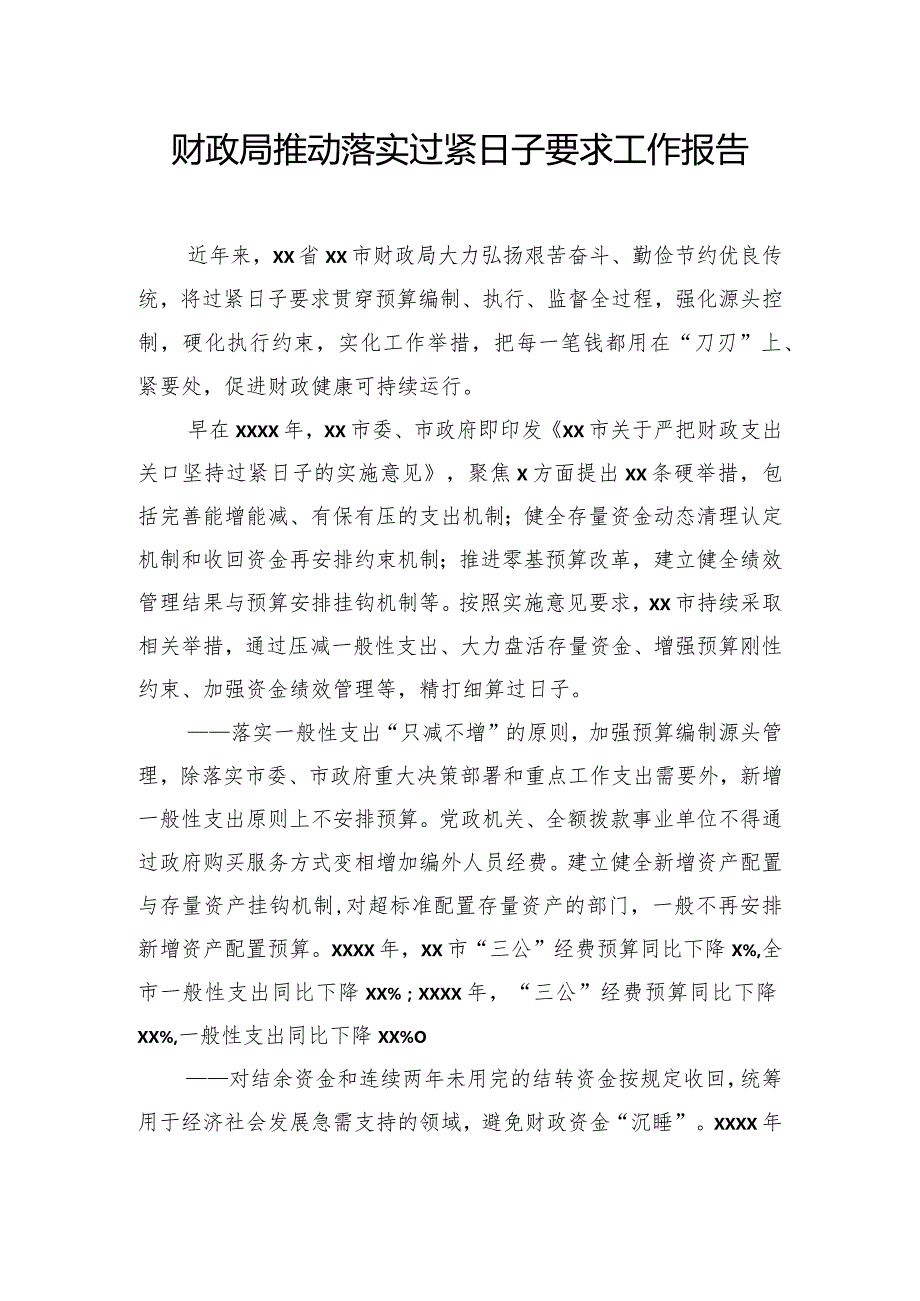 财政局推动落实过紧日子要求工作报告
近年来，xx 省 xx 市财政局大力弘扬艰苦奋斗、勤俭节约优良传
统，将过紧日子要求贯穿预算编制、执行、监督全过程，强化源头控
制，硬化执行约束，实化工作举措，把每一笔钱都用在“刀刃”上、
紧要处，促进财政健康可持续运行。
早在 xxxx 年，xx 市委、市政府即印发《xx 市关于严把财政支出
关口坚持过紧日子的实施意见》，聚焦 x 方面提出 xx 条硬举措，包
括完善能增能减、有保有压的支出机制；健全存量资金动态清理认定
机制和收回资金再安排约束机制；推进零基预算改革，建立健全绩效
管理结果与预算安排挂钩机制等。按照实施意见要求，xx 市持续采取
相关举措，通过压减一般性支出、大力盘活存量资金、增强预算刚性
约束、加强资金绩效管理等，精打细算过日子。
——落实一般性支出“只减不增”的原则，加强预算编制源头管
理，除落实市委、市政府重大决策部署和重点工作支出需要外，新增
一般性支出原则上不安排预算。党政机关、全额拨款事业单位不得通
过政府购买服务方式变相增加编外人员经费。建立健全新增资产配置
与存量资产挂钩机制,对超标准配置存量资产的部门，一般不再安排
新增资产配置预算。XXXX 年，XX 市“三公”经费预算同比下降 X%,全
市一般性支出同比下降 XX%；XXXX 年，“三公”经费预算同比下降
XX%,一般性支出同比下降 XX%O
——对结余资金和连续两年未用完的结转资金按规定收回,统筹
用于经济社会发展急需支持的领域，避免财政资金“沉睡”。XXXX 年